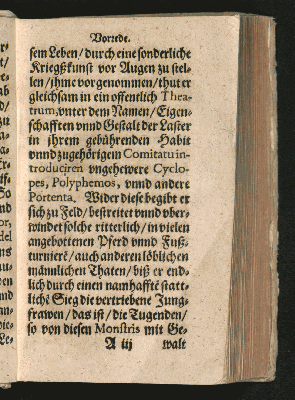 Vorrede.
sem Leben / durch eine sonderliche
Kriegßkunst vor Augen zu stel-
len / ihme vorgenommen / thut er
gleichsam in ein offentlich Thea-
trum, vnter dem Namen / Eigen-
schafften vnnd Gestalt der Laster
in ihrem gebührenden Habit
vnnd zugehörigem Comitatu in-
troduciren vngehewere Cyclo-
pes, Polyphemos, vnnd andere
Portenta. Wider diese begibt er
sich zu Feld / bestreitet vnnd vber-
windet solche ritterlich / in vielen
angebottenen Pferd vnnd Fuß-
turnierē / auch anderen löblichen
männlichen Thaten / biß er end-
lich durch einen namhafftē statt-
lichē Sieg die vertriebene Jung-
frawen / das ist / die Tugenden /
so von diesen Monstris mit Ge-
A iij walt